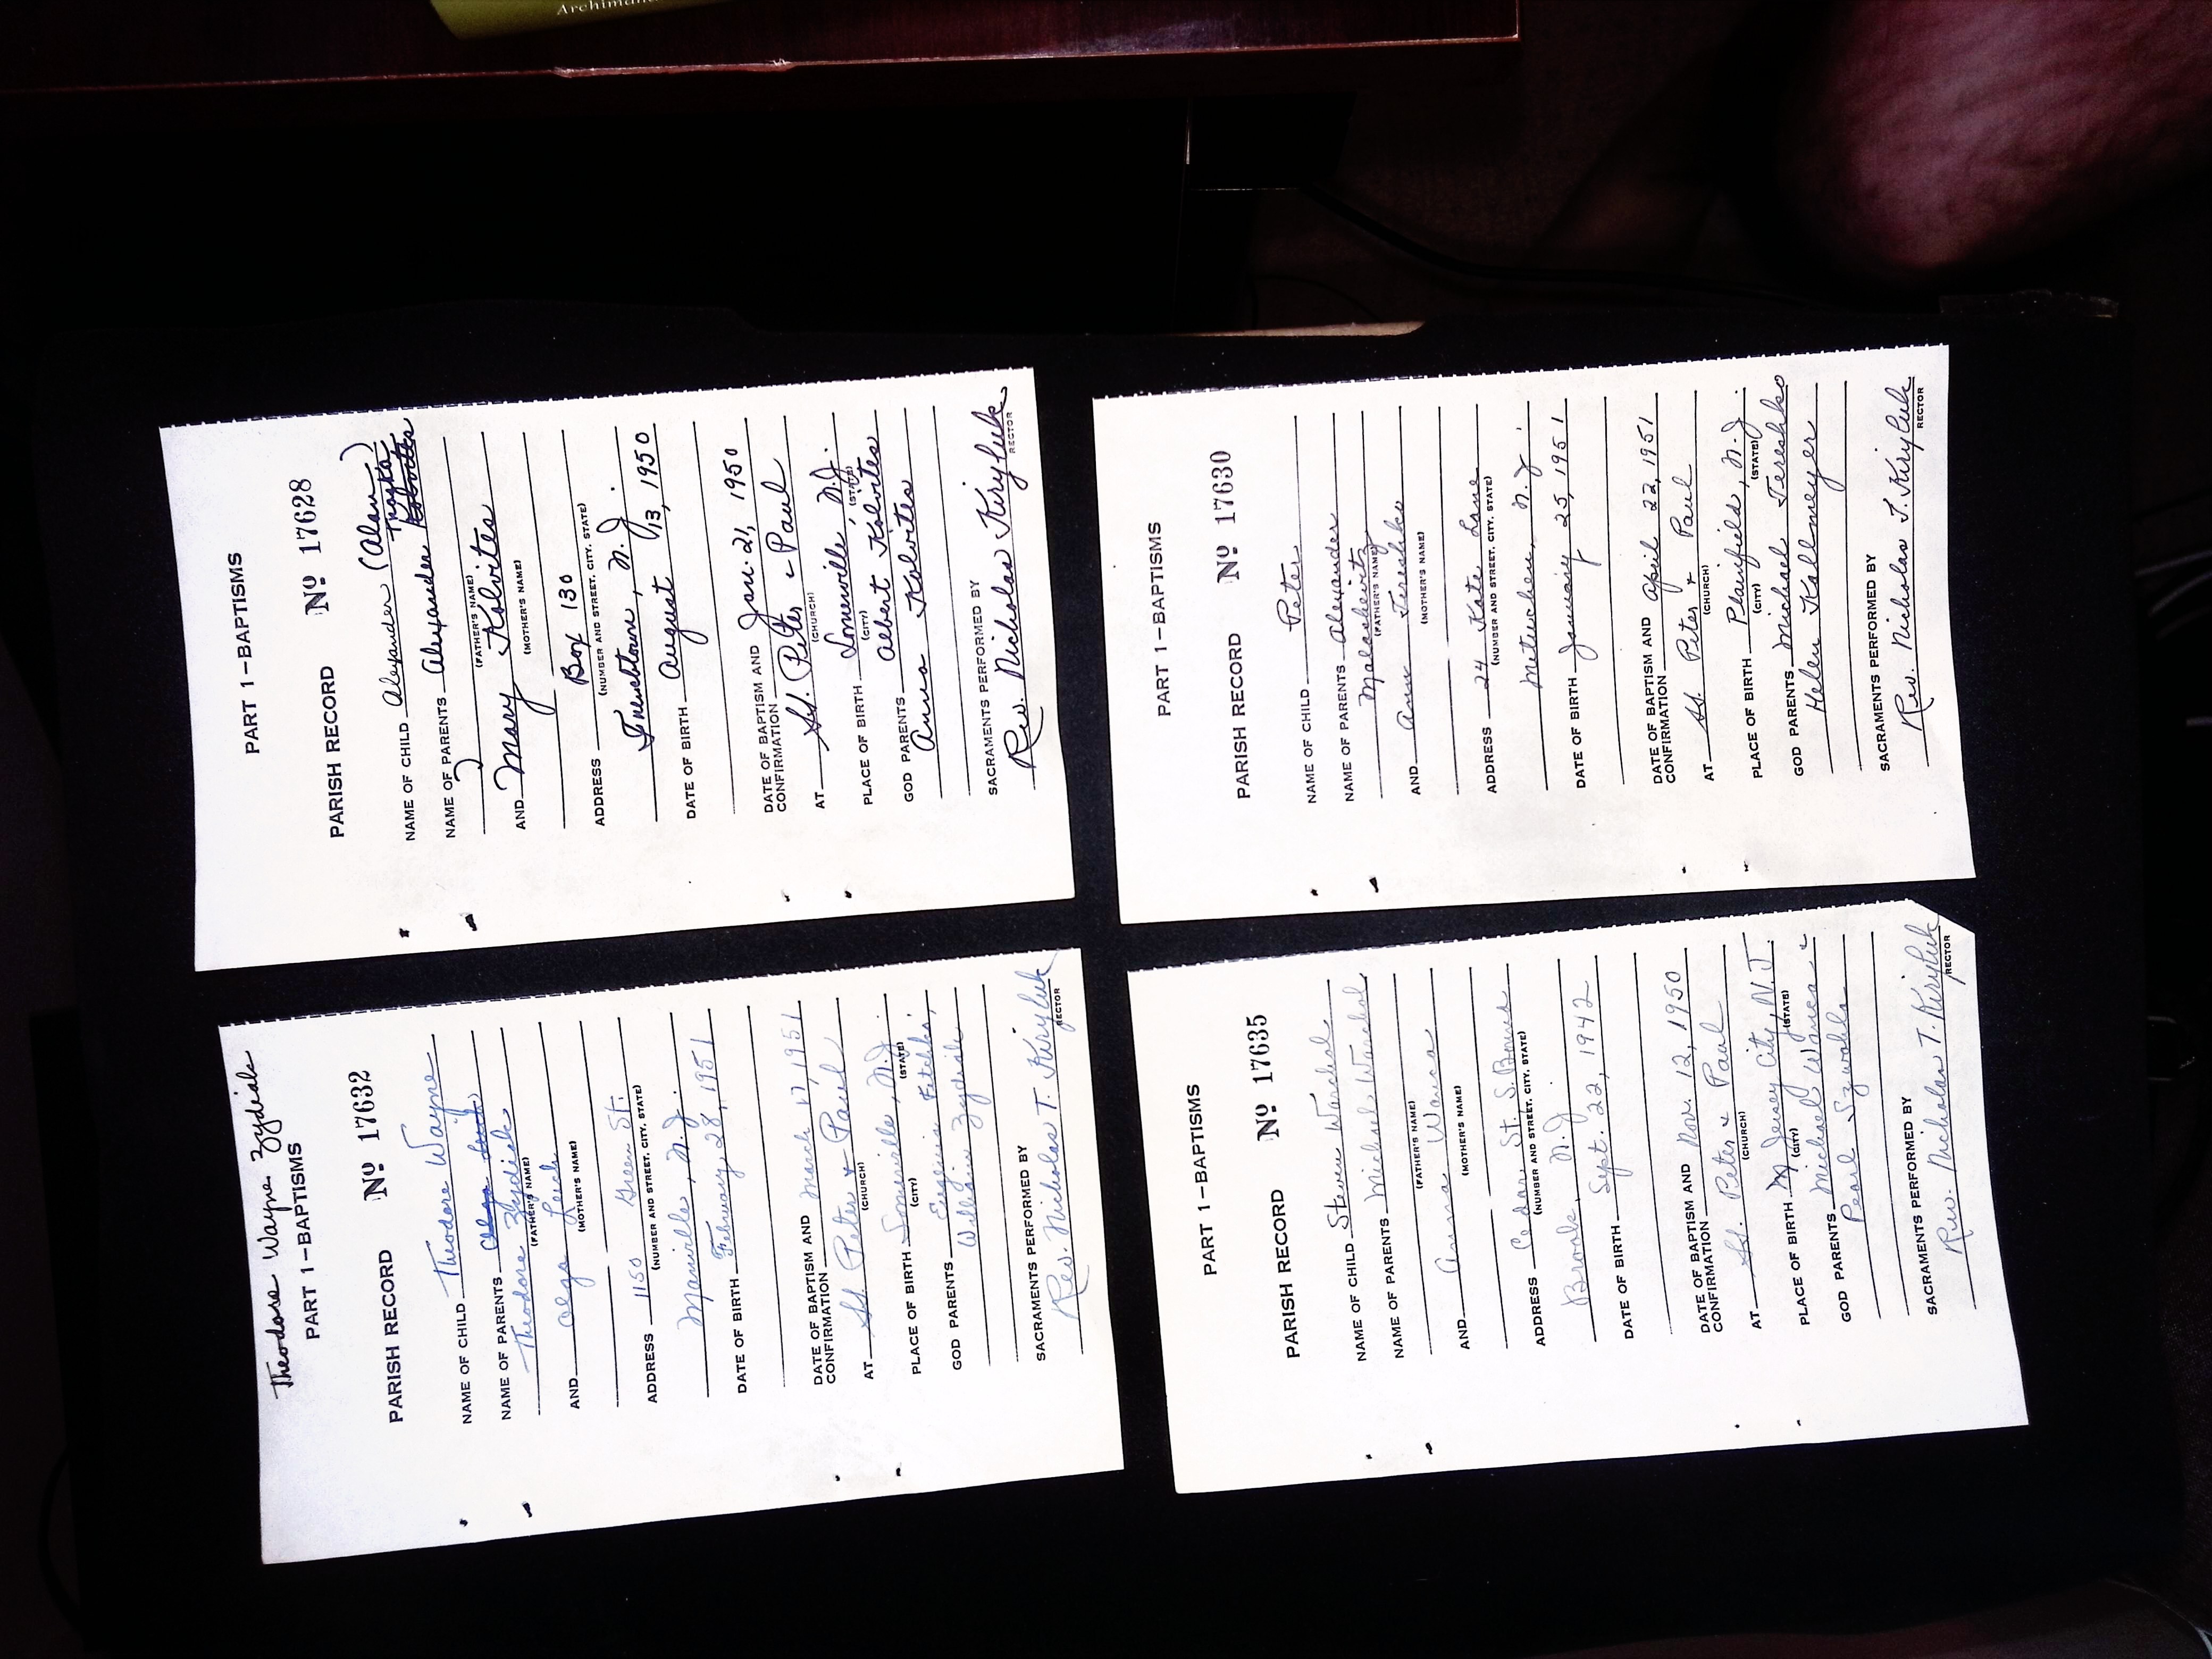 Theodore Wayne Zydiak
PART 1—BAPTISMS
PARISH RECORD Nº 17632
NAME OF CHILD Theodore Wayne
NAME OF PARENTS Olga Leich
Theodore Zydiak
(FATHER'S NAME)
AND Olga Leich
(MOTHER'S NAME)
ADDRESS 1150 Green St.
(NUMBER AND STREET, CITY, STATE)
Manville, N.J.
DATE OF BIRTH February 28, 1951
DATE OF BAPTISM AND
CONFIRMATION March 17, 1951
AT SS. Peter & Paul
(CHURCH)
PLACE OF BIRTH Somerville, N.J.
(CITY) (STATE)
GOD PARENTS Eugenia Fetchko,
William Zydiak
SACRAMENTS PERFORMED BY
Rev. Nicholas T. Kiryluk
RECTOR
PART 1—BAPTISMS
PARISH RECORD Nº 17628
NAME OF CHILD Alexander (Alan)
Traska
NAME OF PARENTS Alexander Kolvites
(FATHER'S NAME)
AND Mary Kolvites
(MOTHER'S NAME)
ADDRESS Box 130
(NUMBER AND STREET, CITY, STATE)
Frenchtown, N.J.
DATE OF BIRTH August 13, 1950
DATE OF BAPTISM AND
CONFIRMATION Jan. 21, 1950
AT SS. Peter & Paul
(CHURCH)
PLACE OF BIRTH Somerville, N.J.
(CITY) (STATE)
GOD PARENTS Albert Kolvites
Anna Kolvites
SACRAMENTS PERFORMED BY
Rev. Nicholas Kiryluk
RECTOR
PART 1—BAPTISMS
PARISH RECORD Nº 17635
NAME OF CHILD Steven Warchol
NAME OF PARENTS Michael Warchol
(FATHER'S NAME)
AND Anna Wanca
(MOTHER'S NAME)
ADDRESS Cedar St., S. Bound
(NUMBER AND STREET, CITY, STATE)
Brook, N.J.
DATE OF BIRTH Sept. 22, 1942
DATE OF BAPTISM AND
CONFIRMATION Nov. 12, 1950
AT SS. Peter & Paul
(CHURCH)
PLACE OF BIRTH Jersey City, N.J.
(CITY) (STATE)
GOD PARENTS Michael Wanca &
Pearl Szwahla
SACRAMENTS PERFORMED BY
Rev. Nicholas T. Kiryluk
RECTOR
PART 1—BAPTISMS
PARISH RECORD Nº 17630
NAME OF CHILD Peter
NAME OF PARENTS Alexander
Malashevitz
(FATHER'S NAME)
AND Ann Tereshko
(MOTHER'S NAME)
ADDRESS 24 Kate Lane
(NUMBER AND STREET, CITY, STATE)
Metuchen, N.J.
DATE OF BIRTH January 25, 1951
DATE OF BAPTISM AND
CONFIRMATION April 22, 1951
AT SS. Peter & Paul
(CHURCH)
PLACE OF BIRTH Plainfield, N.J.
(CITY) (STATE)
GOD PARENTS Michael Tereshko
Helen Kallmeyer
SACRAMENTS PERFORMED BY
Rev. Nicholas T. Kiryluk
RECTOR